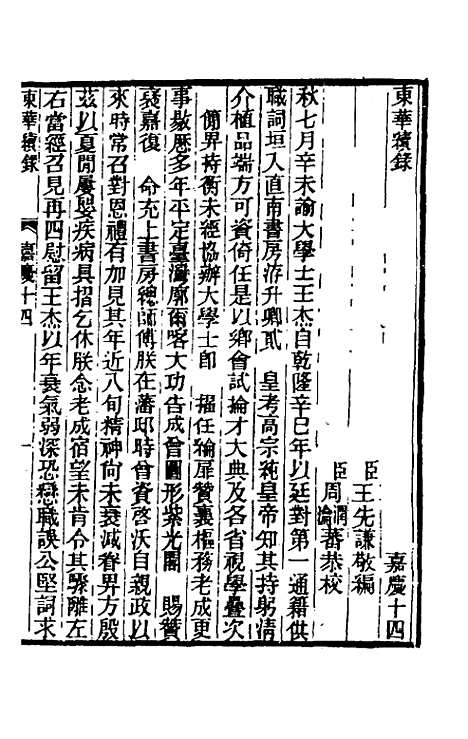 東華續錄　嘉慶十四
臣王先謙敬編
臣周潤蕃周瀹蕃恭校
秋七月辛未諭大學士王杰自乾隆辛巳年以廷對第一通籍供
職詞垣入直南書房洊升卿貳　皇考高宗純皇帝知其持躬清
介植品端方可資倚任是以鄉會試掄才大典及各省視學疊次
簡畀持衡未經協辦大學士卽　擢任綸扉贊襄樞務老成更
事敭歷多年平定臺灣廓爾喀大功告成曾圖形紫光閣　賜贊
褒嘉復　命充上書房總師傅朕在藩邸時曾資啓沃自親政以
來時常召對恩禮有加見其年近八旬精神尙未衰減眷畀方殷
茲以夏閒屢嬰疾病具摺乞休朕念老成宿望未肯令其驟離左
右當經召見再四慰留王杰以年衰氣弱深恐戀職誤公堅詞求
東華續錄　嘉慶十四　一